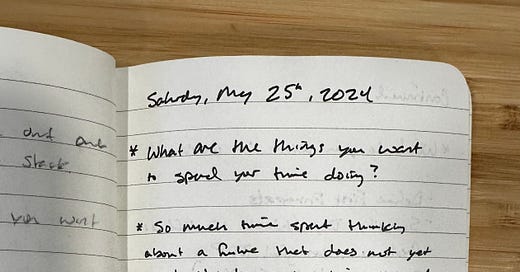 Saturday, May 25th, 2024
* What are the things you want
to spend your time doing?
* So much time spent thinking
about a future that does not yet
and
stack.
you want